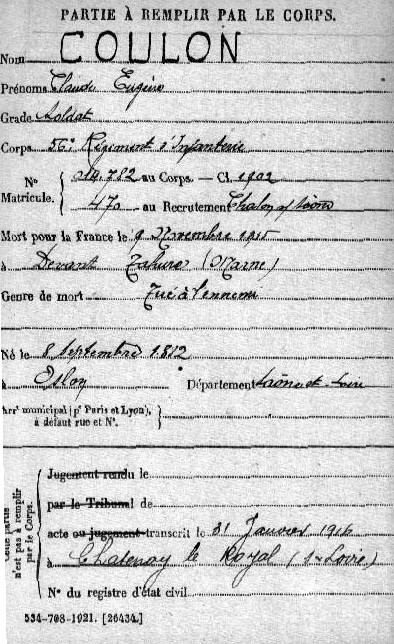 PARTIE À REMPLIR PAR LE CORPS.
Nom COULON
Prénoms Claude Eugène
Grade Soldat
Corps 56e Régiment d'Infanterie
No 014.782 au Corps. — Cl. 1902
Matricule. 470 au Recrutement Chalon s/ Saône
Mort pour la France le 9 Novembre 1915
à Devant Tahure (Marne)
Genre de mort Tué à l'ennemi
Né le 8 Septembre 1882
à Oslon Département Saône et Loire
Arrt municipal (pr Paris et Lyon),
à défaut rue et No.
Cette partie
n'est pas à remplir
par le Corps.
Jugement rendu le
par le Tribunal de
acte ou jugement transcrit le 31 Janvier 1916
à Chatenoy le Royal (S. Loire)
No du registre d'état civil
534-708-1921. [26434.]